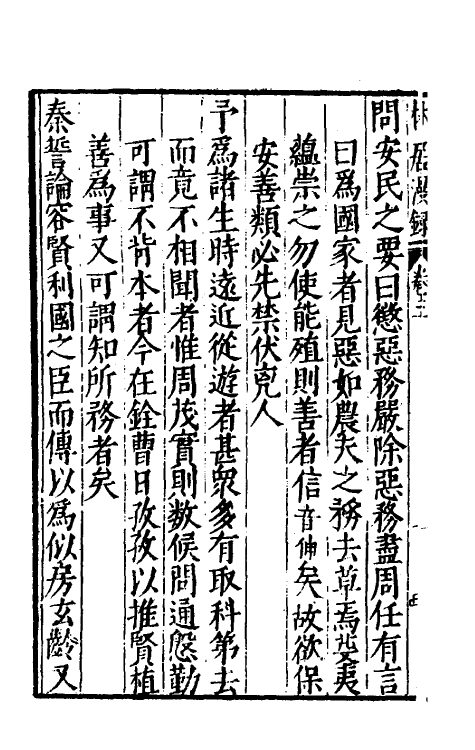 林居漫錄 卷三
問安民之要曰懲惡務嚴除惡務盡周任有言
曰爲國家者見惡如農夫之務去草焉芟夷
蘊崇之勿使能殖則善者信音伸矣故欲保
安善類必先禁伏兇人
予爲諸生時遠近從遊者甚衆多有取科第去
而竟不相聞者惟周茂實則数候問通慇勤
可謂不背本者今在銓曹日孜孜以推賢植
善爲事又可謂知所務者矣
秦誓論容賢利國之臣而傳以爲似房玄齡又